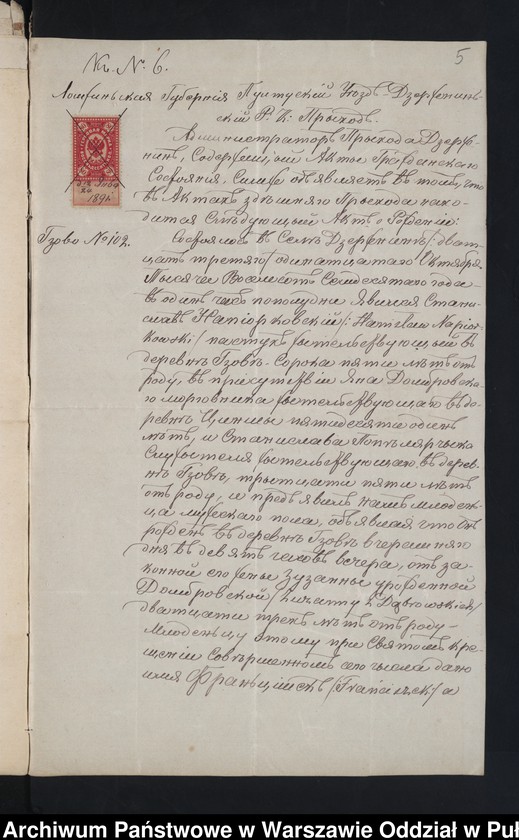 5
Къ № 6.
Ломжинская Губернія Пултускій Уѣздъ Дзержениньскій Р. К. Приходъ.
Администраторъ Прихода Дзерженинъ, Содержащій Акты Гражданскаго
Состоянія. Симъ объявляетъ въ томъ, что
въ Актахъ здѣшняго Прихода находится Слѣдующій Актъ о Рожденіи:
1894
Гзово № 102.
Состоялось въ Селѣ Дзерженинъ (двадцать третьяго) одинатцатаго Октября
Тысяча Восемьсотъ Семдесятаго года
въ одинъ часъ пополудни. Явился Станиславъ Напіорковскій /: Stanisław Napiórkowski / пастухъ жительствующій въ
деревнѣ Гзовѣ. Сорока пяти лѣтъ отъ
роду, въ присутствіи Яна Домбровскаго жительствующаго въ деревнѣ пятидесяти одинъ
лѣтъ, и Станислава
жительствующаго въ деревнѣ Гзовѣ, тритцати пяти лѣтъ
отъ роду, и предъявилъ намъ младенца мужескаго пола, объявляя что онъ
рожденъ въ деревнѣ Гзовѣ вчерашняго
дня въ девять часовъ вечера, отъ законной его жены Зузанны урожденной
Домбровской / Zuzanny z Dąbrowskich /
дватцати трехъ лѣтъ отъ роду –
Младенцу этому при Святомъ Крещеніи Совершенномъ сего числа дано
имя Францишекъ / Franciszek / а
Archiwum Państwowe w Warszawie Oddział w Puł